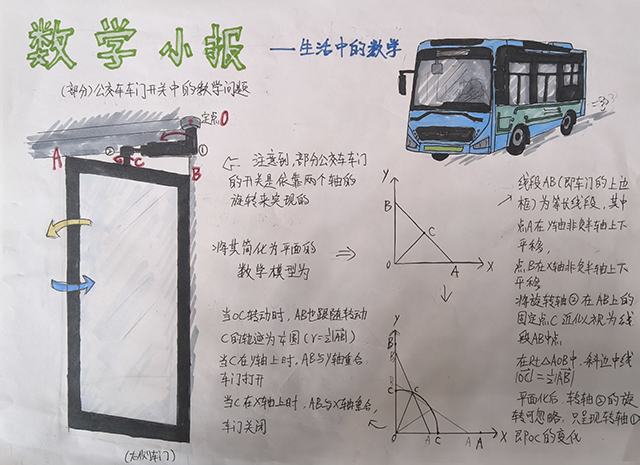 数学小报
——生活中的数学
(部分)公交车车门开关中的数学问题
定点O
A
②
C
①
B
注意到,部分公交车车门
的开关是依靠两个轴的
旋转来实现的
将其简化为平面的
数学模型为
当OC转动时,AB也跟随转动
C的轨迹为¼圆(r=½|AB|)
当C在y轴上时,AB与y轴重合,
车门打开
当C在x轴上时,AB与x轴重合,
车门关闭
(右侧车门)
Y
B
C
O
A
X
Y
B
B
C
C
O
A
C
A
X
线段AB(即车门的上边
框)为等长线段,其中
点A在y轴非负半轴上下
平移,
点B在x轴非负半轴上下
平移
将旋转轴②在AB上的
固定点C近似视为线
段AB中点
在Rt△AOB中,斜边中线
|OC|=½|AB|
平面化后,转轴②的旋
转可忽略,只呈现转轴①
即OC的变化